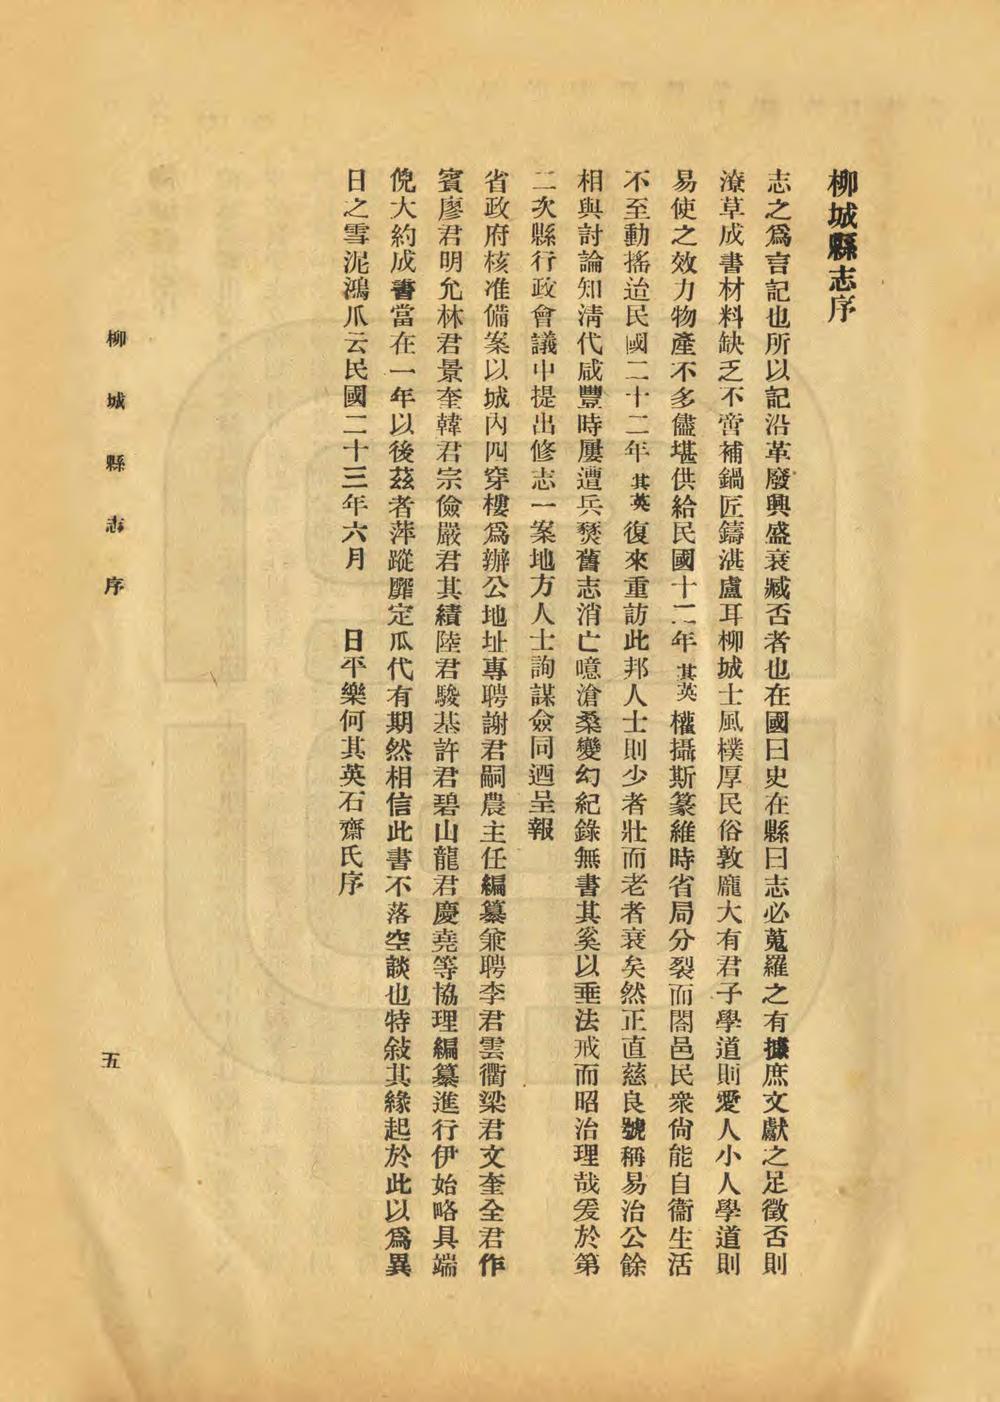 柳城縣志序
志之爲言記也所以記沿革廢興盛衰臧否者也在國曰史在縣曰志必蒐羅之有據庶文獻之足徵否則
潦草成書材料缺乏不啻補鍋匠鑄湛盧耳柳城士風樸厚民俗敦龐大有君子學道則愛人小人學道則
易使之效力物產不多儘堪供給民國十二年其英權攝斯篆維時省局分裂而闔邑民衆尙能自衞生活
不至動搖迨民國二十二年其英復來重訪此邦人士則少者壯而老者衰矣然正直慈良號稱易治公餘
相與討論知淸代咸豐時屢遭兵燹舊志消亡噫滄桑變幻紀錄無書其奚以垂法戒而昭治理哉爰於第
二次縣行政會議中提出修志一案地方人士詢謀僉同迺呈報
省政府核准備案以城內四穿樓爲辦公地址專聘謝君嗣農主任編纂兼聘李君雲衢梁君文奎全君作
賓廖君明允林君景奎韓君宗儉嚴君其績陸君駿基許君碧山龍君慶堯等協理編纂進行伊始略具端
倪大約成書當在一年以後茲者萍蹤靡定瓜代有期然相信此書不落空談也特敍其緣起於此以爲異
日之雪泥鴻爪云民國二十三年六月 日平樂何其英石齋氏序
柳城縣志序
五